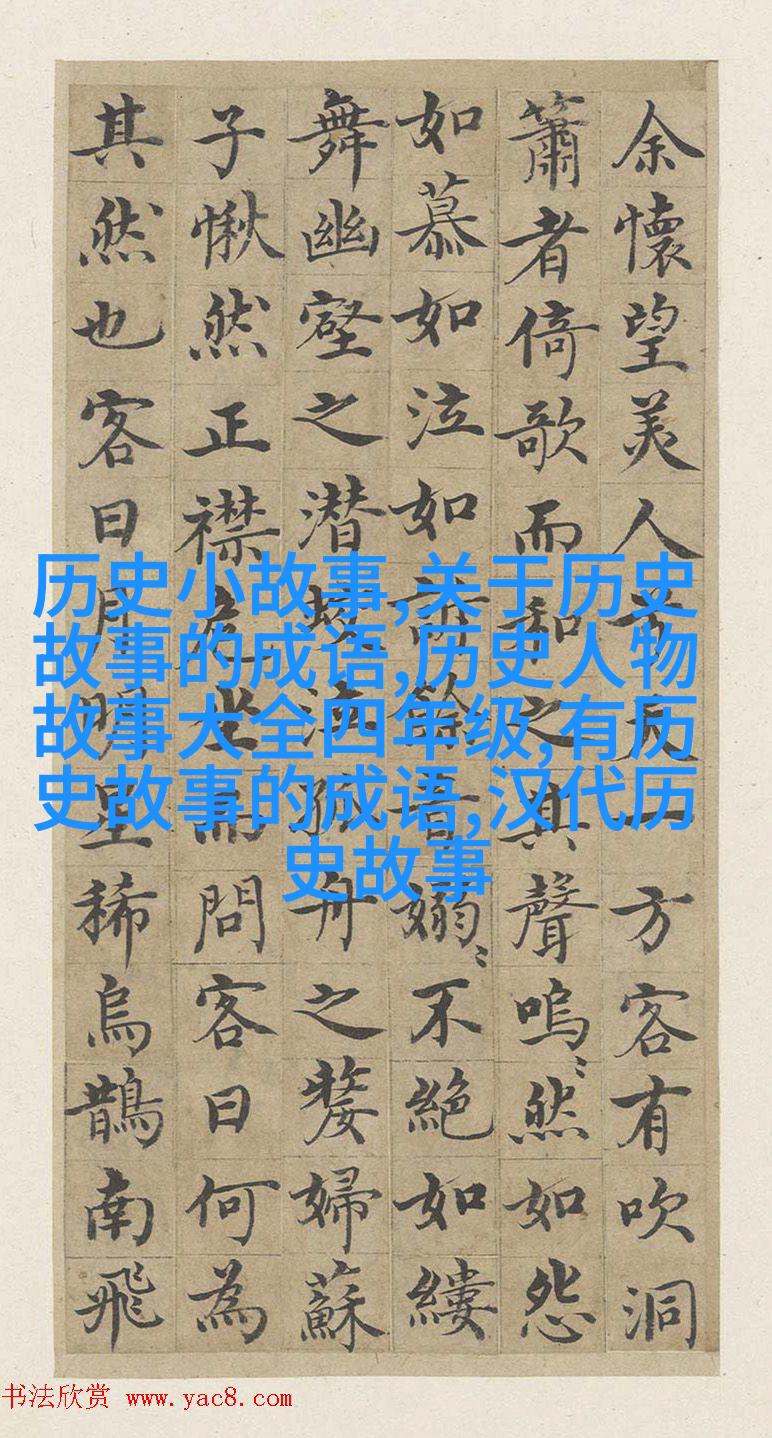 余懷望美人兮天一方客有吹洞
簫者倚歌而和之其聲嗚〻然如怨
如慕如泣如訴餘音嫋〻不絶如縷
舞幽壑之潛蛟泣孤舟之嫠婦蘇
子愀然正襟危坐而問客曰何為
其然也客曰月明星稀烏鵲南飛
历史小故事,关于历史
故事的成语,历史人物
故事大全四年级,有历
史故事的成语,汉代历
史故事
书法欣赏 www.yac8.com